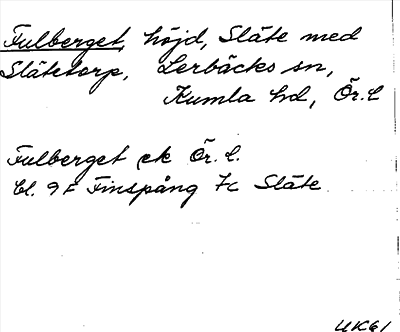 Fulberget, höjd, Släte med
Slätetorp, Lerbäcks sn,
Kumla hd, Ör. l
Fulberget ek Ör. l.
bl. 9F Finspång 7c Släte
UK61